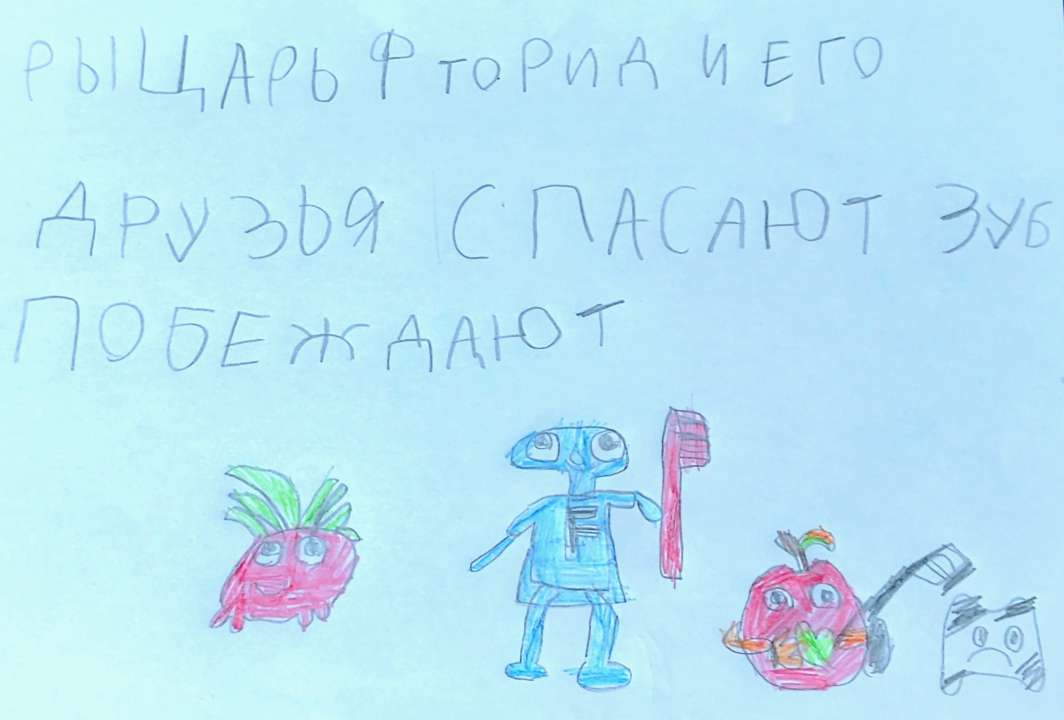 РЫЦАРЬ ФТОРИД И ЕГО
ДРУЗЬЯ СПАСАЮТ ЗУБ
ПОБЕЖДАЮТ
F